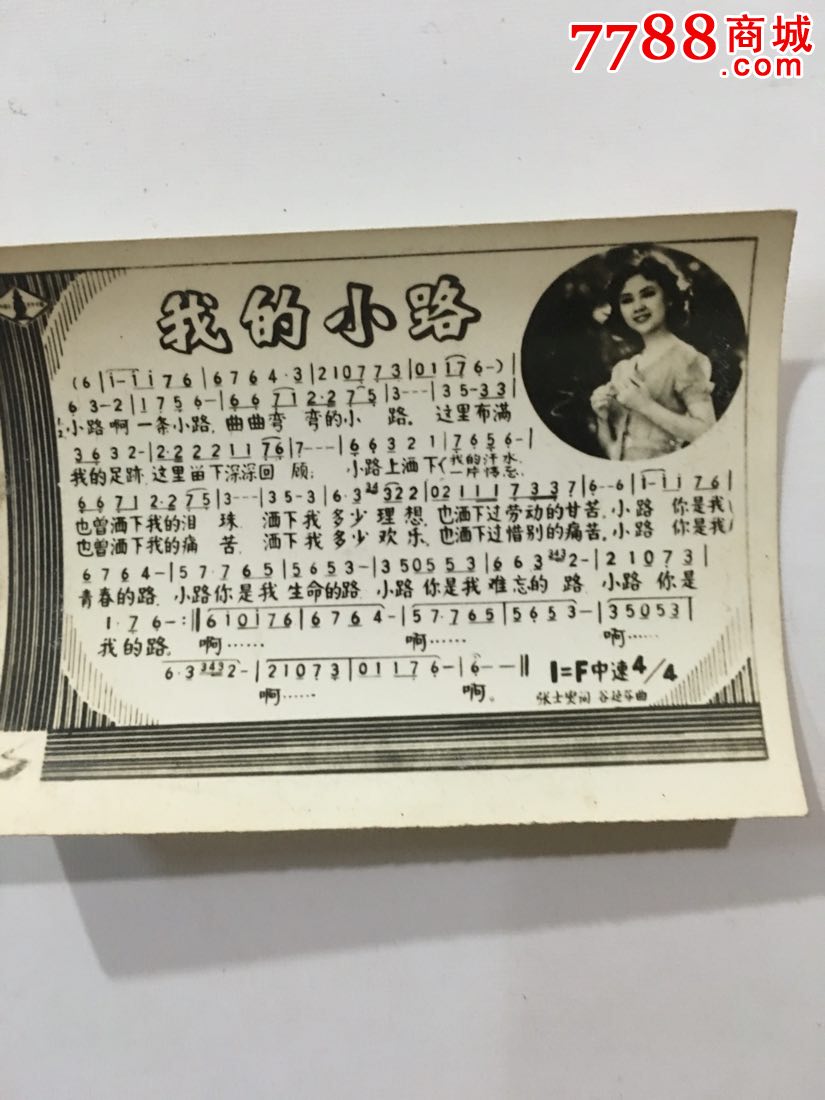 7788商城
.com
我的小路
(6|i-i i 7 6|6 7 6 4·3|2 1 0 7 7 3|0 1 1 7 6-)|
6 3-2|1 7 5 6-|6 6 7 1 2·2 7 5|3---|3 5-3 3|
小路啊一条小路，曲曲弯弯的小路。这里布满
3 6 3 2-|2·2 2 2 1 1 7 6|7---|6 6 3 2 1|7 6 5 6-|
我的足跡，这里畄下深深回顾；小路上洒下(我的汗水
一片情怎
6 6 7 1 2·2 7 5|3---|3 5-3|6·3 3 4 3 2 2|0 2 1 1 1 7 3 3 7|6--6|i-i i 7 6|
也曾洒下我的泪珠 洒下我多少理想，也洒下过劳动的甘苦。小路 你是我
也曾洒下我的痛苦 洒下我多少欢乐，也洒下过惜别的痛苦。小路 你是我
6 7 6 4-|5 7·7 6 5|5 6 5 3-|3 5 0 5 5 3|6 6 3 3 4 3 2-|2 1 0 7 3|
青春的路，小路你是我生命的路 小路你是我难忘的路 小路你是
1·7 6-:‖6 i 0 i 7 6|6 7 6 4-|5 7·7 6 5|5 6 5 3-|3 5 0 5 3|
我的路。啊…… 啊…… 啊……
6·3 3 4 3 2-|2 1 0 7 3|0 1 1 7 6-|6--‖ 1=F中速4/4
啊…… 啊。
张士燮词 谷建芬曲